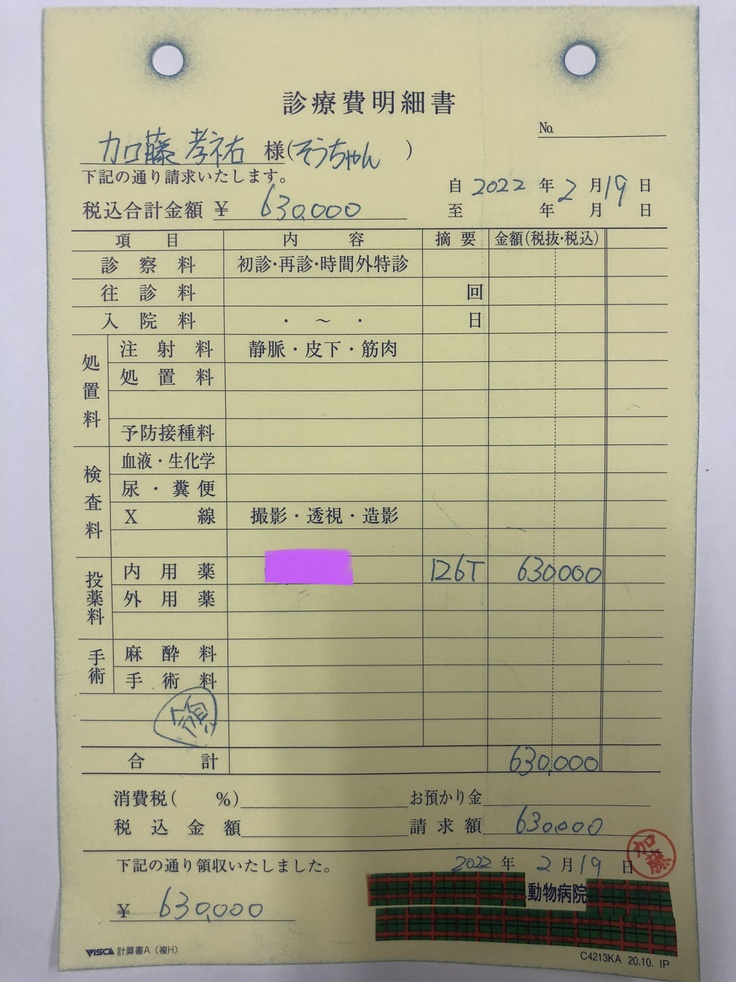 診療費明細書
No.
加藤 孝祐 様(そうちゃん)
下記の通り請求いたします。
自 2022 年 2 月 19 日
税込合計金額 ¥ 630,000
至 年 月 日
項目 内容 摘要 金額(税抜・税込)
診察料 初診・再診・時間外特診
往診料 回
入院料 ・ ～ ・ 日
処置料
注射料 静脈・皮下・筋肉
処置料
予防接種料
検査料
血液・生化学
尿・糞便
X線 撮影・透視・造影
投薬料
内用薬 126T 630000
外用薬
手術
麻酔料
手術料
領
合計 630,000
消費税( %) お預かり金
税込金額 請求額 630000
下記の通り領収いたしました。 2022 年 2 月 19 日
加藤
¥ 630,000
動物病院
VISCA 計算書A（複H）
C4213KA 20.10. IP